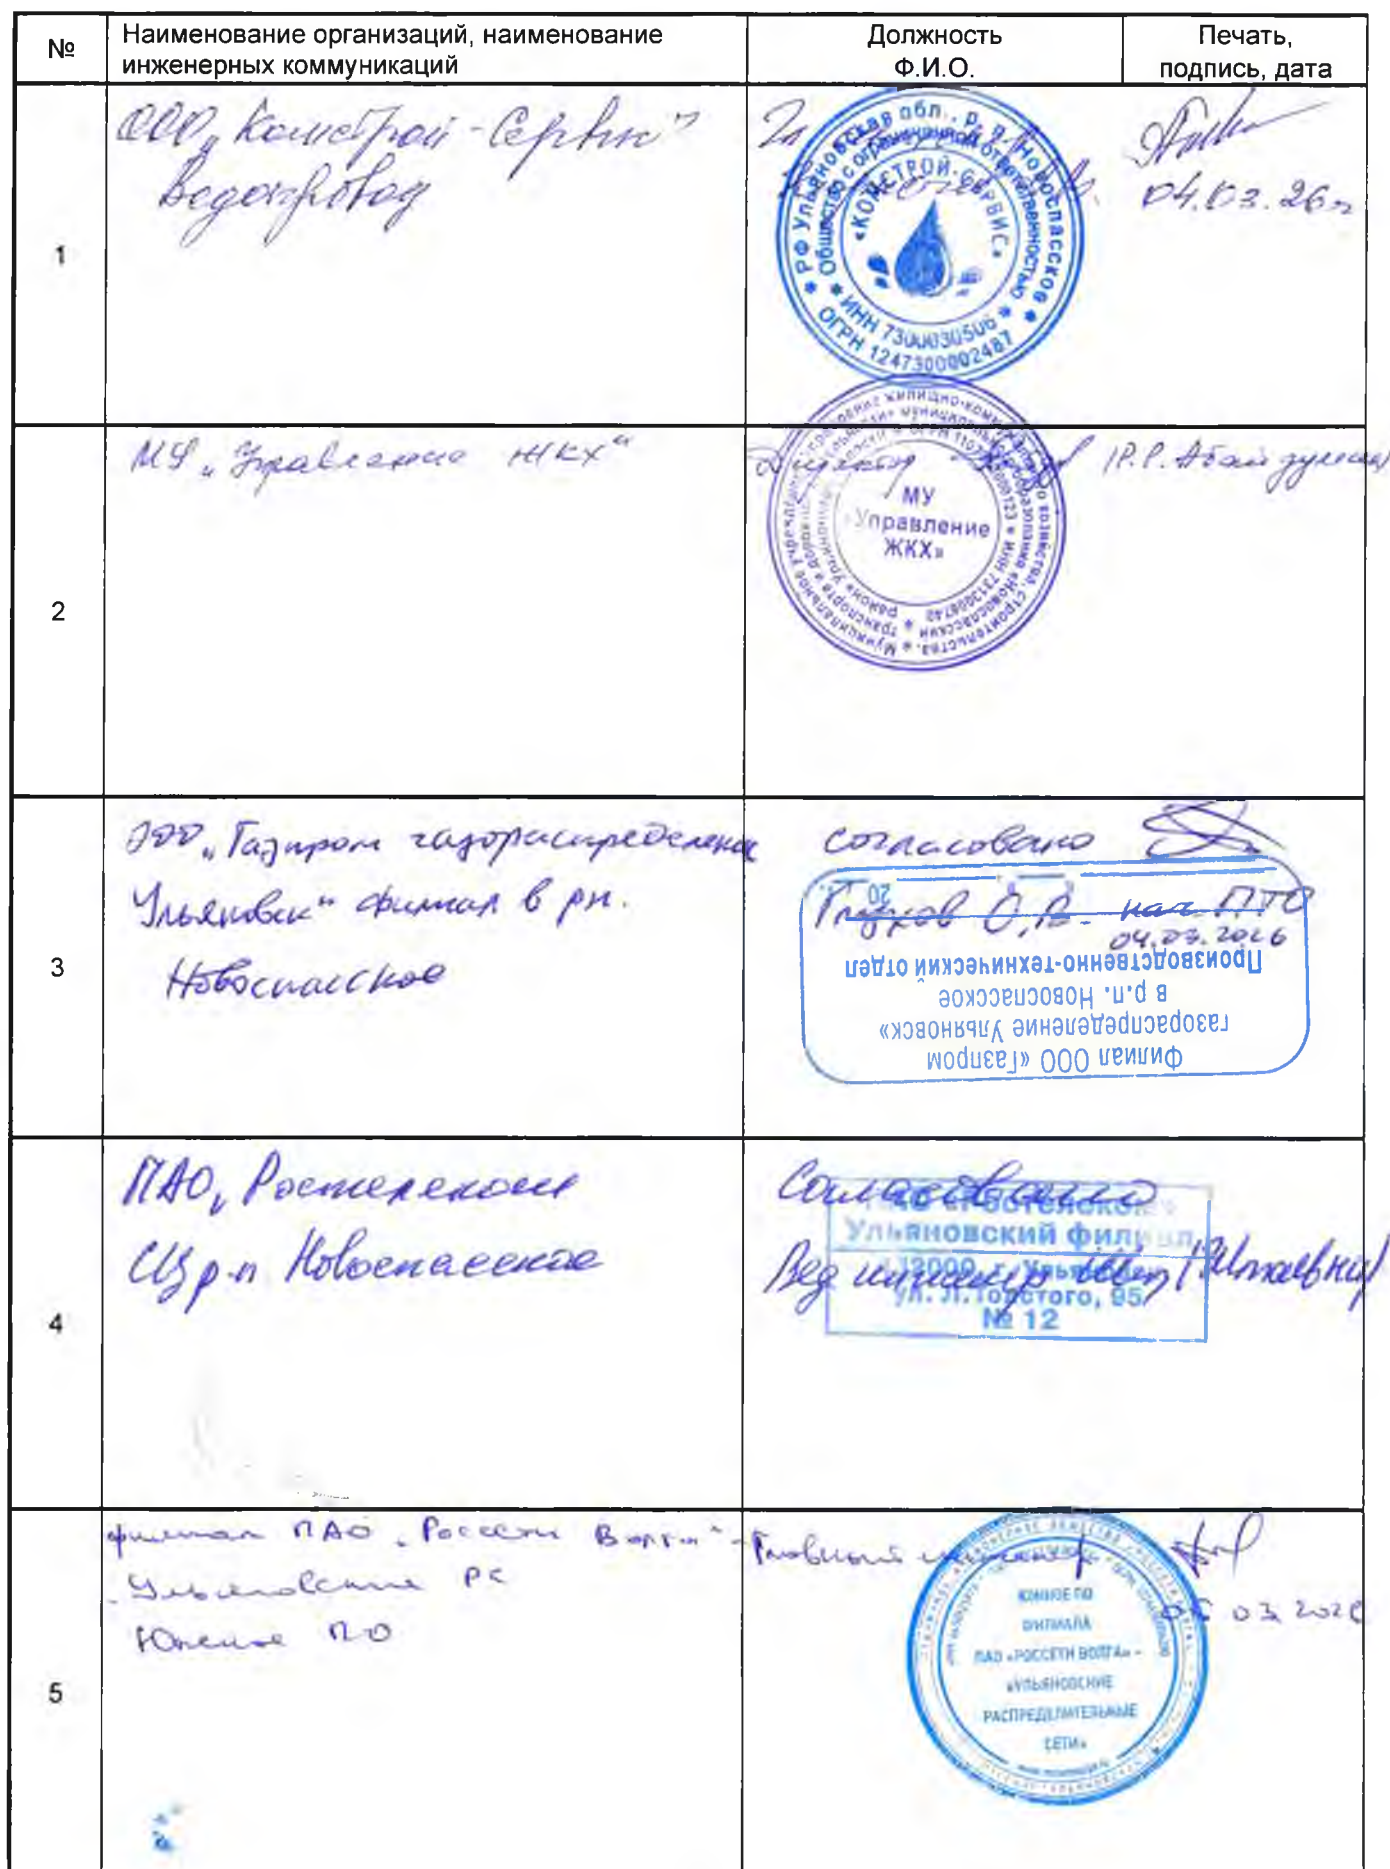 №
Наименование организаций, наименование
инженерных коммуникаций
Должность
Ф.И.О.
Печать,
подпись, дата
1
ООО „Комстрой-Сервис"
Водопровод
04.03.26г
РФ Ульяновская обл., р.п. Новоспасское
Общество с ограниченной ответственностью
«КОМСТРОЙ-СЕРВИС»
ИНН 7300030506
ОГРН 1247300002487
2
МУ „Управление ЖКХ"
Директор
МУ
«Управление
ЖКХ»
3
ООО „Газпром газораспределение
Ульяновск" филиал в рп.
Новоспасское
согласовано
Глухов О.В. - нач. ПТО
04.03.2026
20
Филиал ООО «Газпром
газораспределение Ульяновск»
в р.п. Новоспасское
Производственно-технический отдел
4
ПАО „Ростелеком
СЦ р.п Новоспасское
Согласовано
Вед инженер
ПАО «Ростелеком»
Ульяновский филиал
г. Ульяновск
ул. Л.Толстого, 95
№ 12
5
филиал ПАО „Россети Волга" -
„Ульяновские РС
Южное ПО
Главный инженер
05 03 2026
ЮЖНОЕ ПО
ФИЛИАЛА
ПАО «РОССЕТИ ВОЛГА» -
«УЛЬЯНОВСКИЕ
РАСПРЕДЕЛИТЕЛЬНЫЕ
СЕТИ»